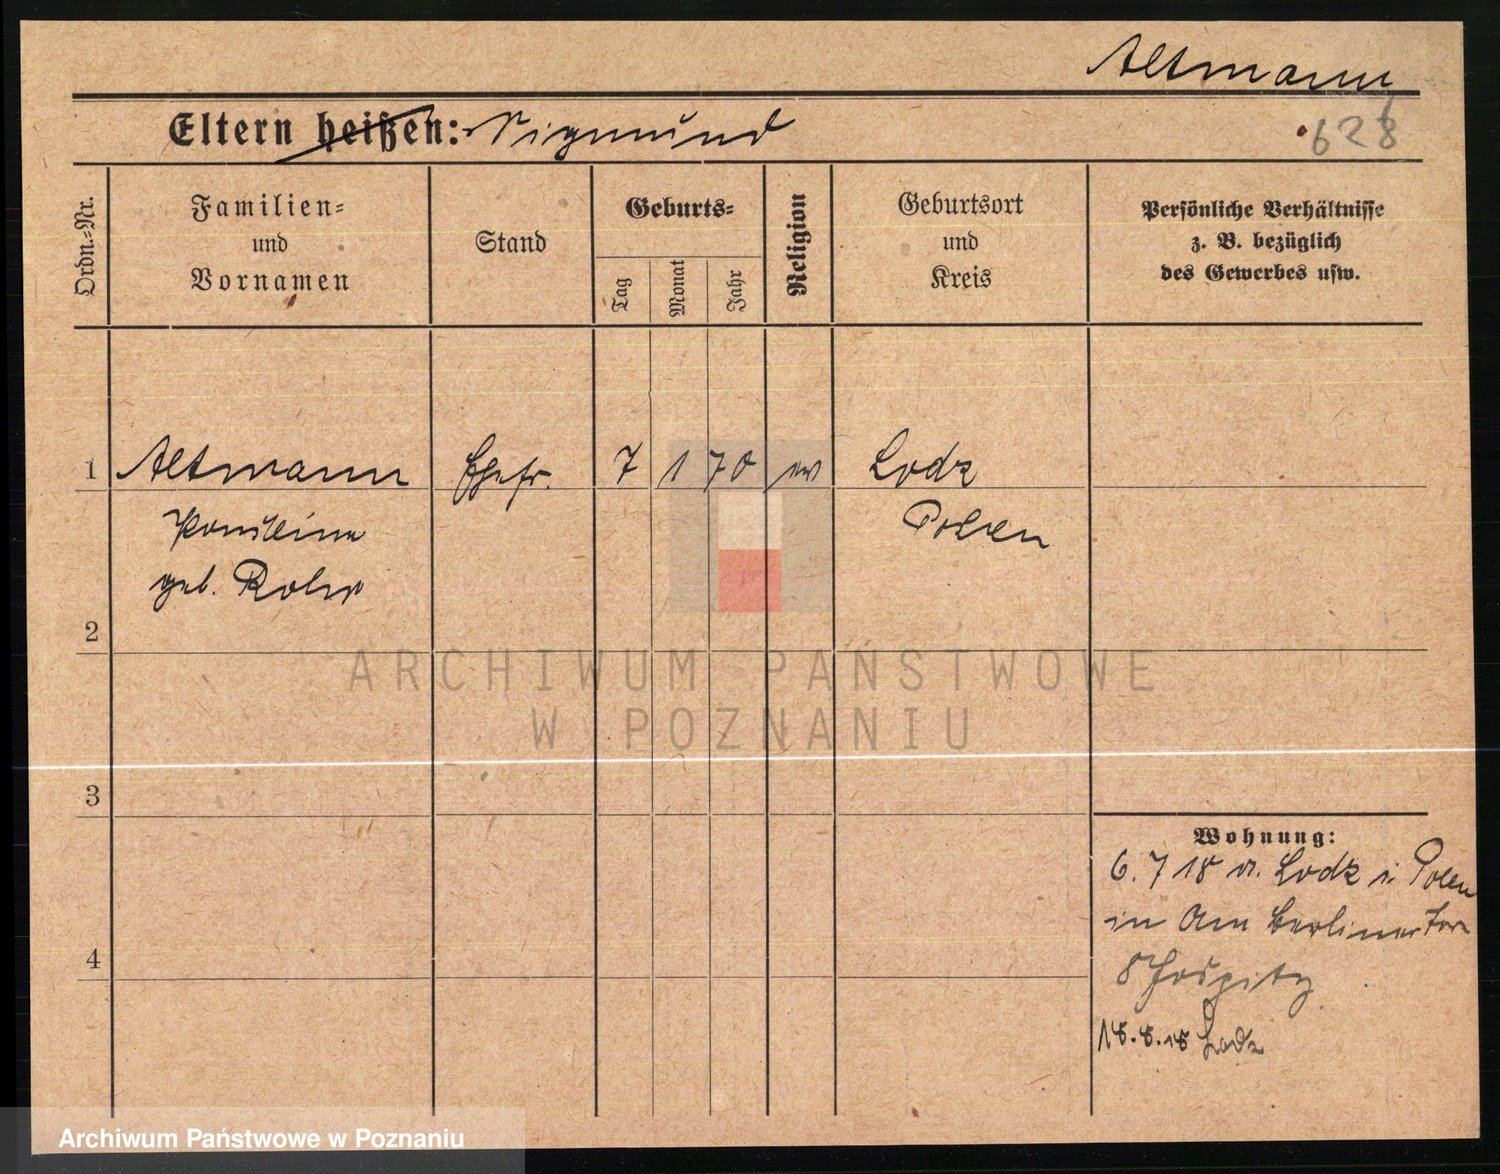 Altmann
Eltern heißen: Sigmund
628
Ordn.=Nr.
Familien=
und
Vornamen
Stand
Geburts=
Tag
Monat
Jahr
Religion
Geburtsort
und
Kreis
Persönliche Verhältnisse
z. B. bezüglich
des Gewerbes usw.
1 Altmann Ehefr. 7 1 70 ev Lodz
Polen
geb. Rohr
2
ARCHIWUM PAŃSTWOWE
W POZNANIU
3
Wohnung:
6. 7 18 v. Lodz i. Polen
in Am Berliner Tor
8 Hospitz
4
18.8.18 Lodz
Archiwum Państwowe w Poznaniu